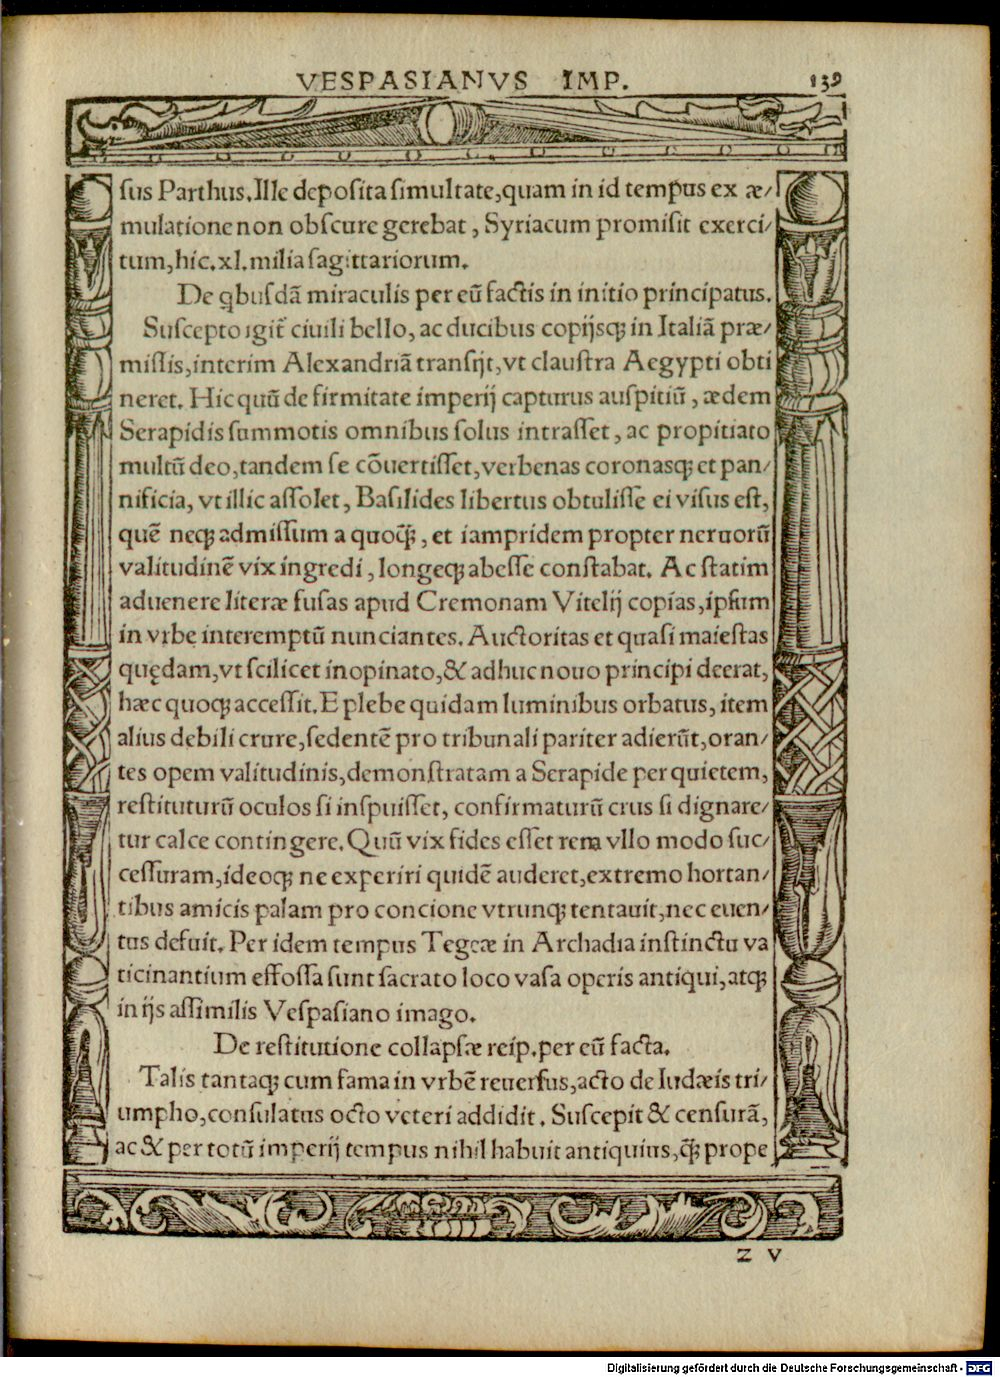 VESPASIANVS IMP. 139
sus Parthus. Ille deposita simultate, quam in id tempus ex æ/
mulatione non obscure gerebat, Syriacum promisit exerci/
tum, hic. xl. milia sagittariorum.
De qbusdā miraculis per eū factis in initio principatus.
Suscepto igit̃ ciuili bello, ac ducibus copijsq; in Italiā præ/
missis, interim Alexandriā transijt, vt claustra Aegypti obti
neret. Hic quū de firmitate imperij capturus auspitiū, ædem
Serapidis summotis omnibus solus intrasset, ac propitiato
multū deo, tandem se cōuertisset, verbenas coronasq; et pan/
nificia, vt illic assolet, Basilides libertus obtulisse ei visus est,
quē neq; admissum a quoq̃;, et iampridem propter neruorū
valitudinē vix ingredi, longeq; abesse constabat. Ac statim
aduenere literæ fusas apud Cremonam Vitelij copias, ipsum
in vrbe interemptū nunciantes. Auctoritas et quasi maiestas
quędam, vt scilicet inopinato, & adhuc nouo principi deerat,
hæc quoq; accessit. E plebe quidam luminibus orbatus, item
alius debili crure, sedentē pro tribunali pariter adierūt, oran/
tes opem valitudinis, demonstratam a Serapide per quietem,
restituturū oculos si inspuisset, confirmaturū crus si dignare/
tur calce contingere. Quū vix fides esset rem vllo modo suc/
cessuram, ideoq; ne experiri quidē auderet, extremo hortan/
tibus amicis palam pro concione vtrunq; tentauit, nec euen/
tus defuit. Per idem tempus Tegeæ in Archadia instinctu va
ticinantium effossa sunt sacrato loco vasa operis antiqui, atq;
in ijs assimilis Vespasiano imago.
De restitutione collapsæ reip. per eū facta.
Talis tantaq; cum fama in vrbē reuersus, acto de Iudæis tri/
umpho, consulatus octo veteri addidit. Suscepit & censurā,
ac & per totū imperij tempus nihil habuit antiquius, q̃; prope
Z V
Digitalisierung gefördert durch die Deutsche Forschungsgemeinschaft - DFG